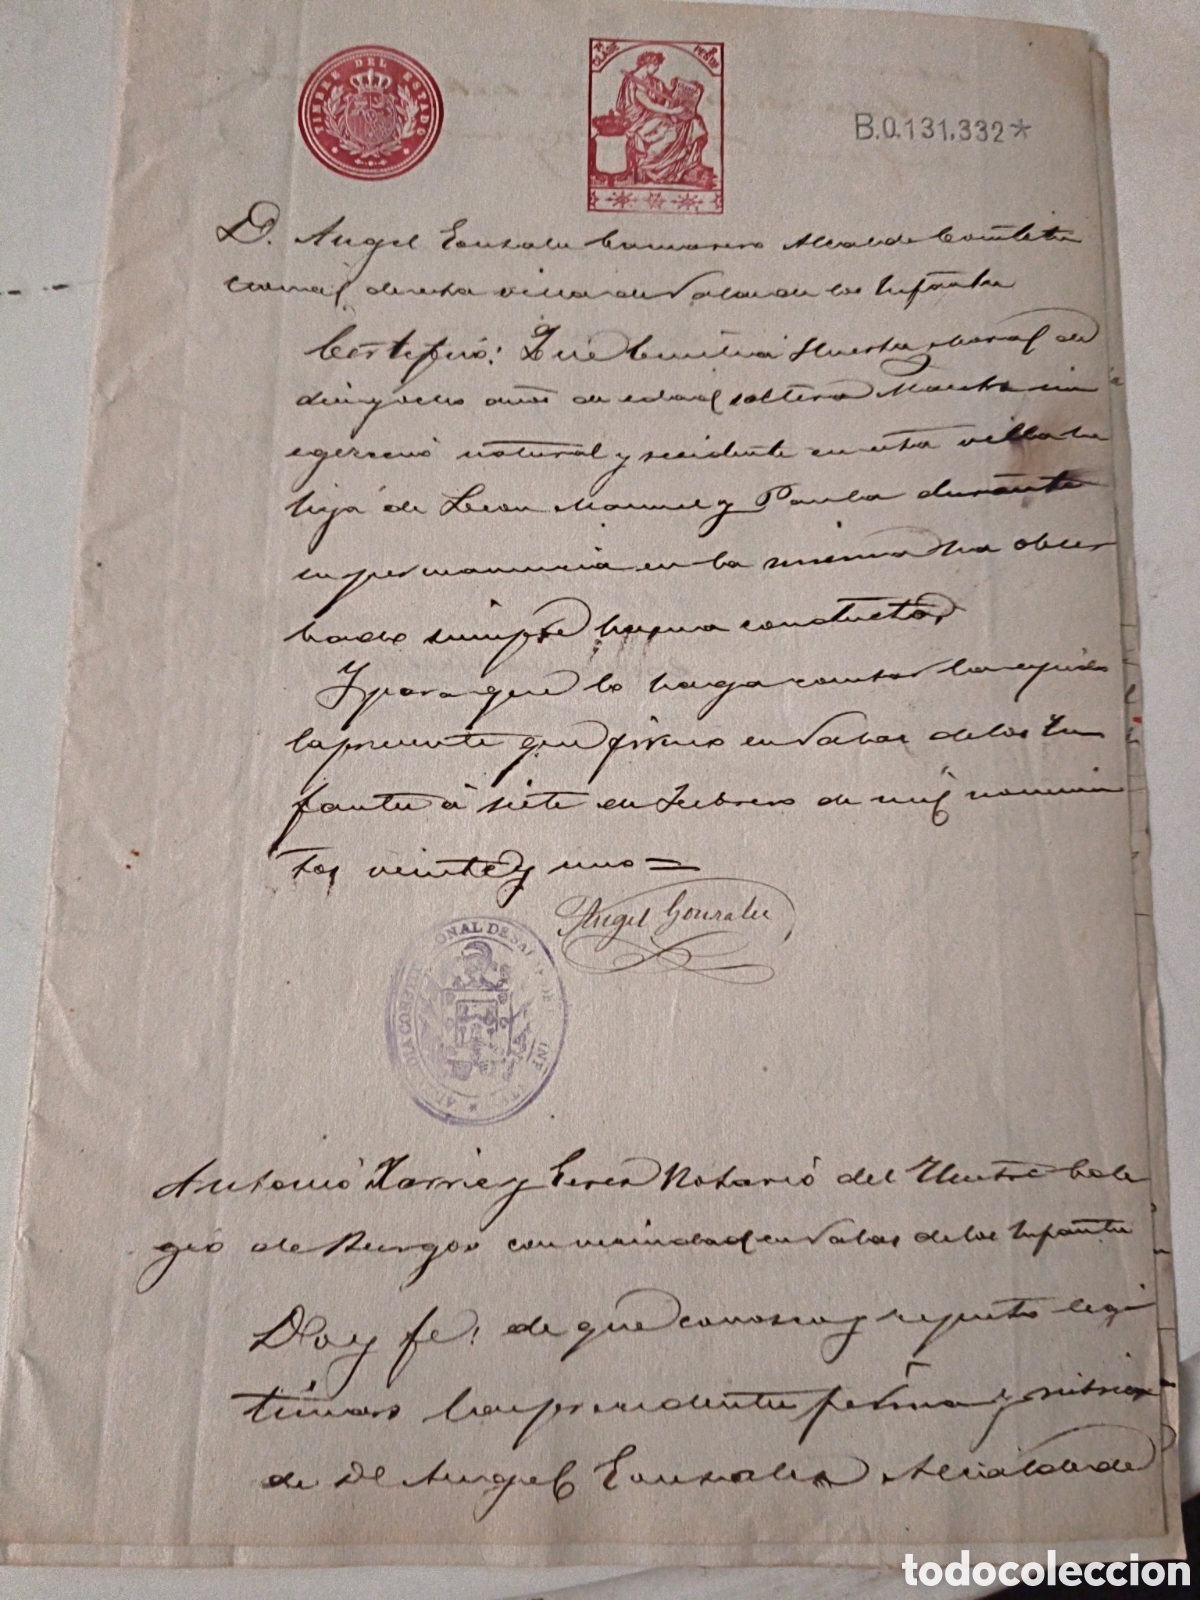 TIMBRE DEL ESTADO
7ª CLASE PESETAS
B.0.131.332*
D. Angel Gonzalez Camarero Alcalde Constitu
cional de esta villa de Salas de los Infantes
Certifico: Que Emilia Huerta Moral de
diez y ocho años de edad soltera Maestra sin
egercicio natural y residente en esta villa
hija de Leon Manuel y Paula durante
su permanencia en la misma ha obser
bado siempre buena conducta
Y para que lo haga constar la expido
la presente que firmo en Salas de los In
fantes á siete de Febrero de mil novecien
tos veinte y uno =
Angel Gonzalez
ALCALDIA CONSTITUCIONAL DE SALAS DE LOS INFANTES
Antonio y Perez Notario del Ilustre Cole
gio de Burgos con vecindad en Salas de los Infantes
Doy fe: de que conozco y reputo legi
timas las precedentes firma y rubrica
de Dn Angel Gonzalez Alcalde de
todocoleccion